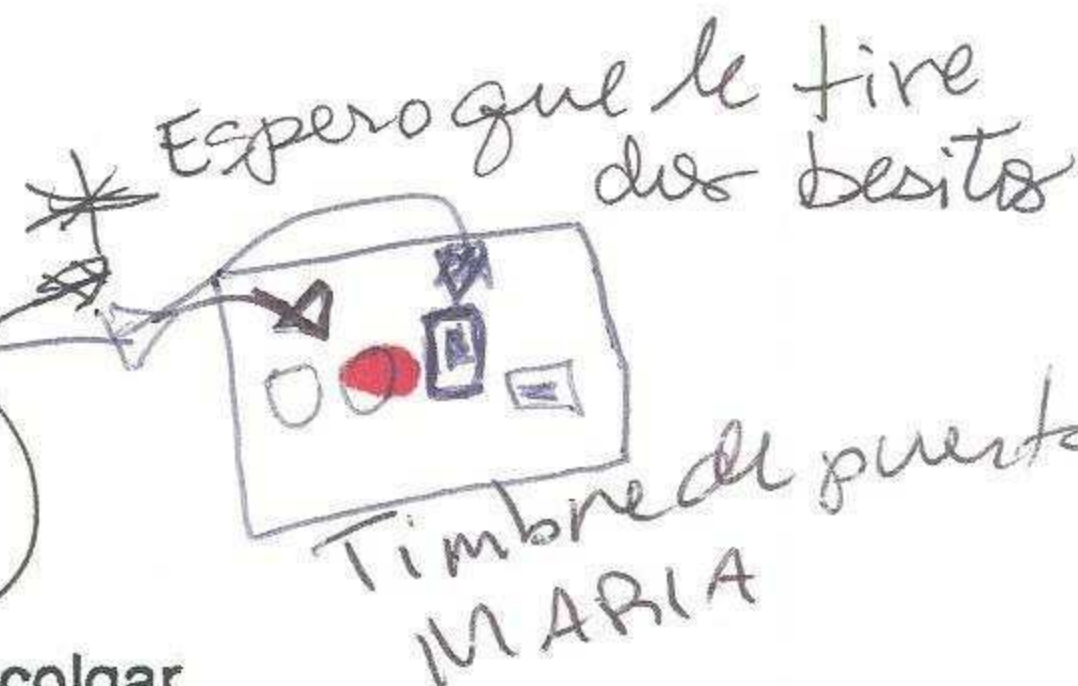 Espero que le tire
dos besitos
Timbre de puerta
MARIA
colgar